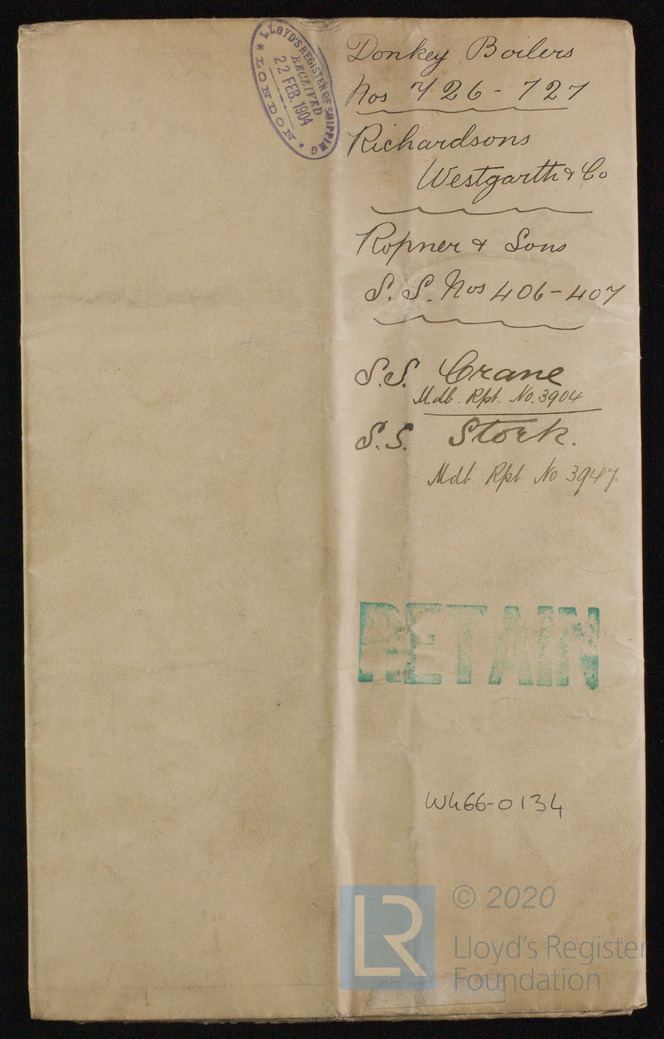 LLOYD'S REGISTER OF SHIPPING
RECEIVED
22 FEB. 1904
LONDON
Donkey Boilers
Nos 726 - 727
Richardsons
Westgarth & Co
Ropner & Sons
S.S. Nos 406-407
S.S. Crane
Mdb. Rpt. No. 3904
S.S. Stork.
Mdb Rpt No 3947.
RETAIN
W466-0134
LR
© 2020
Lloyd's Register
Foundation